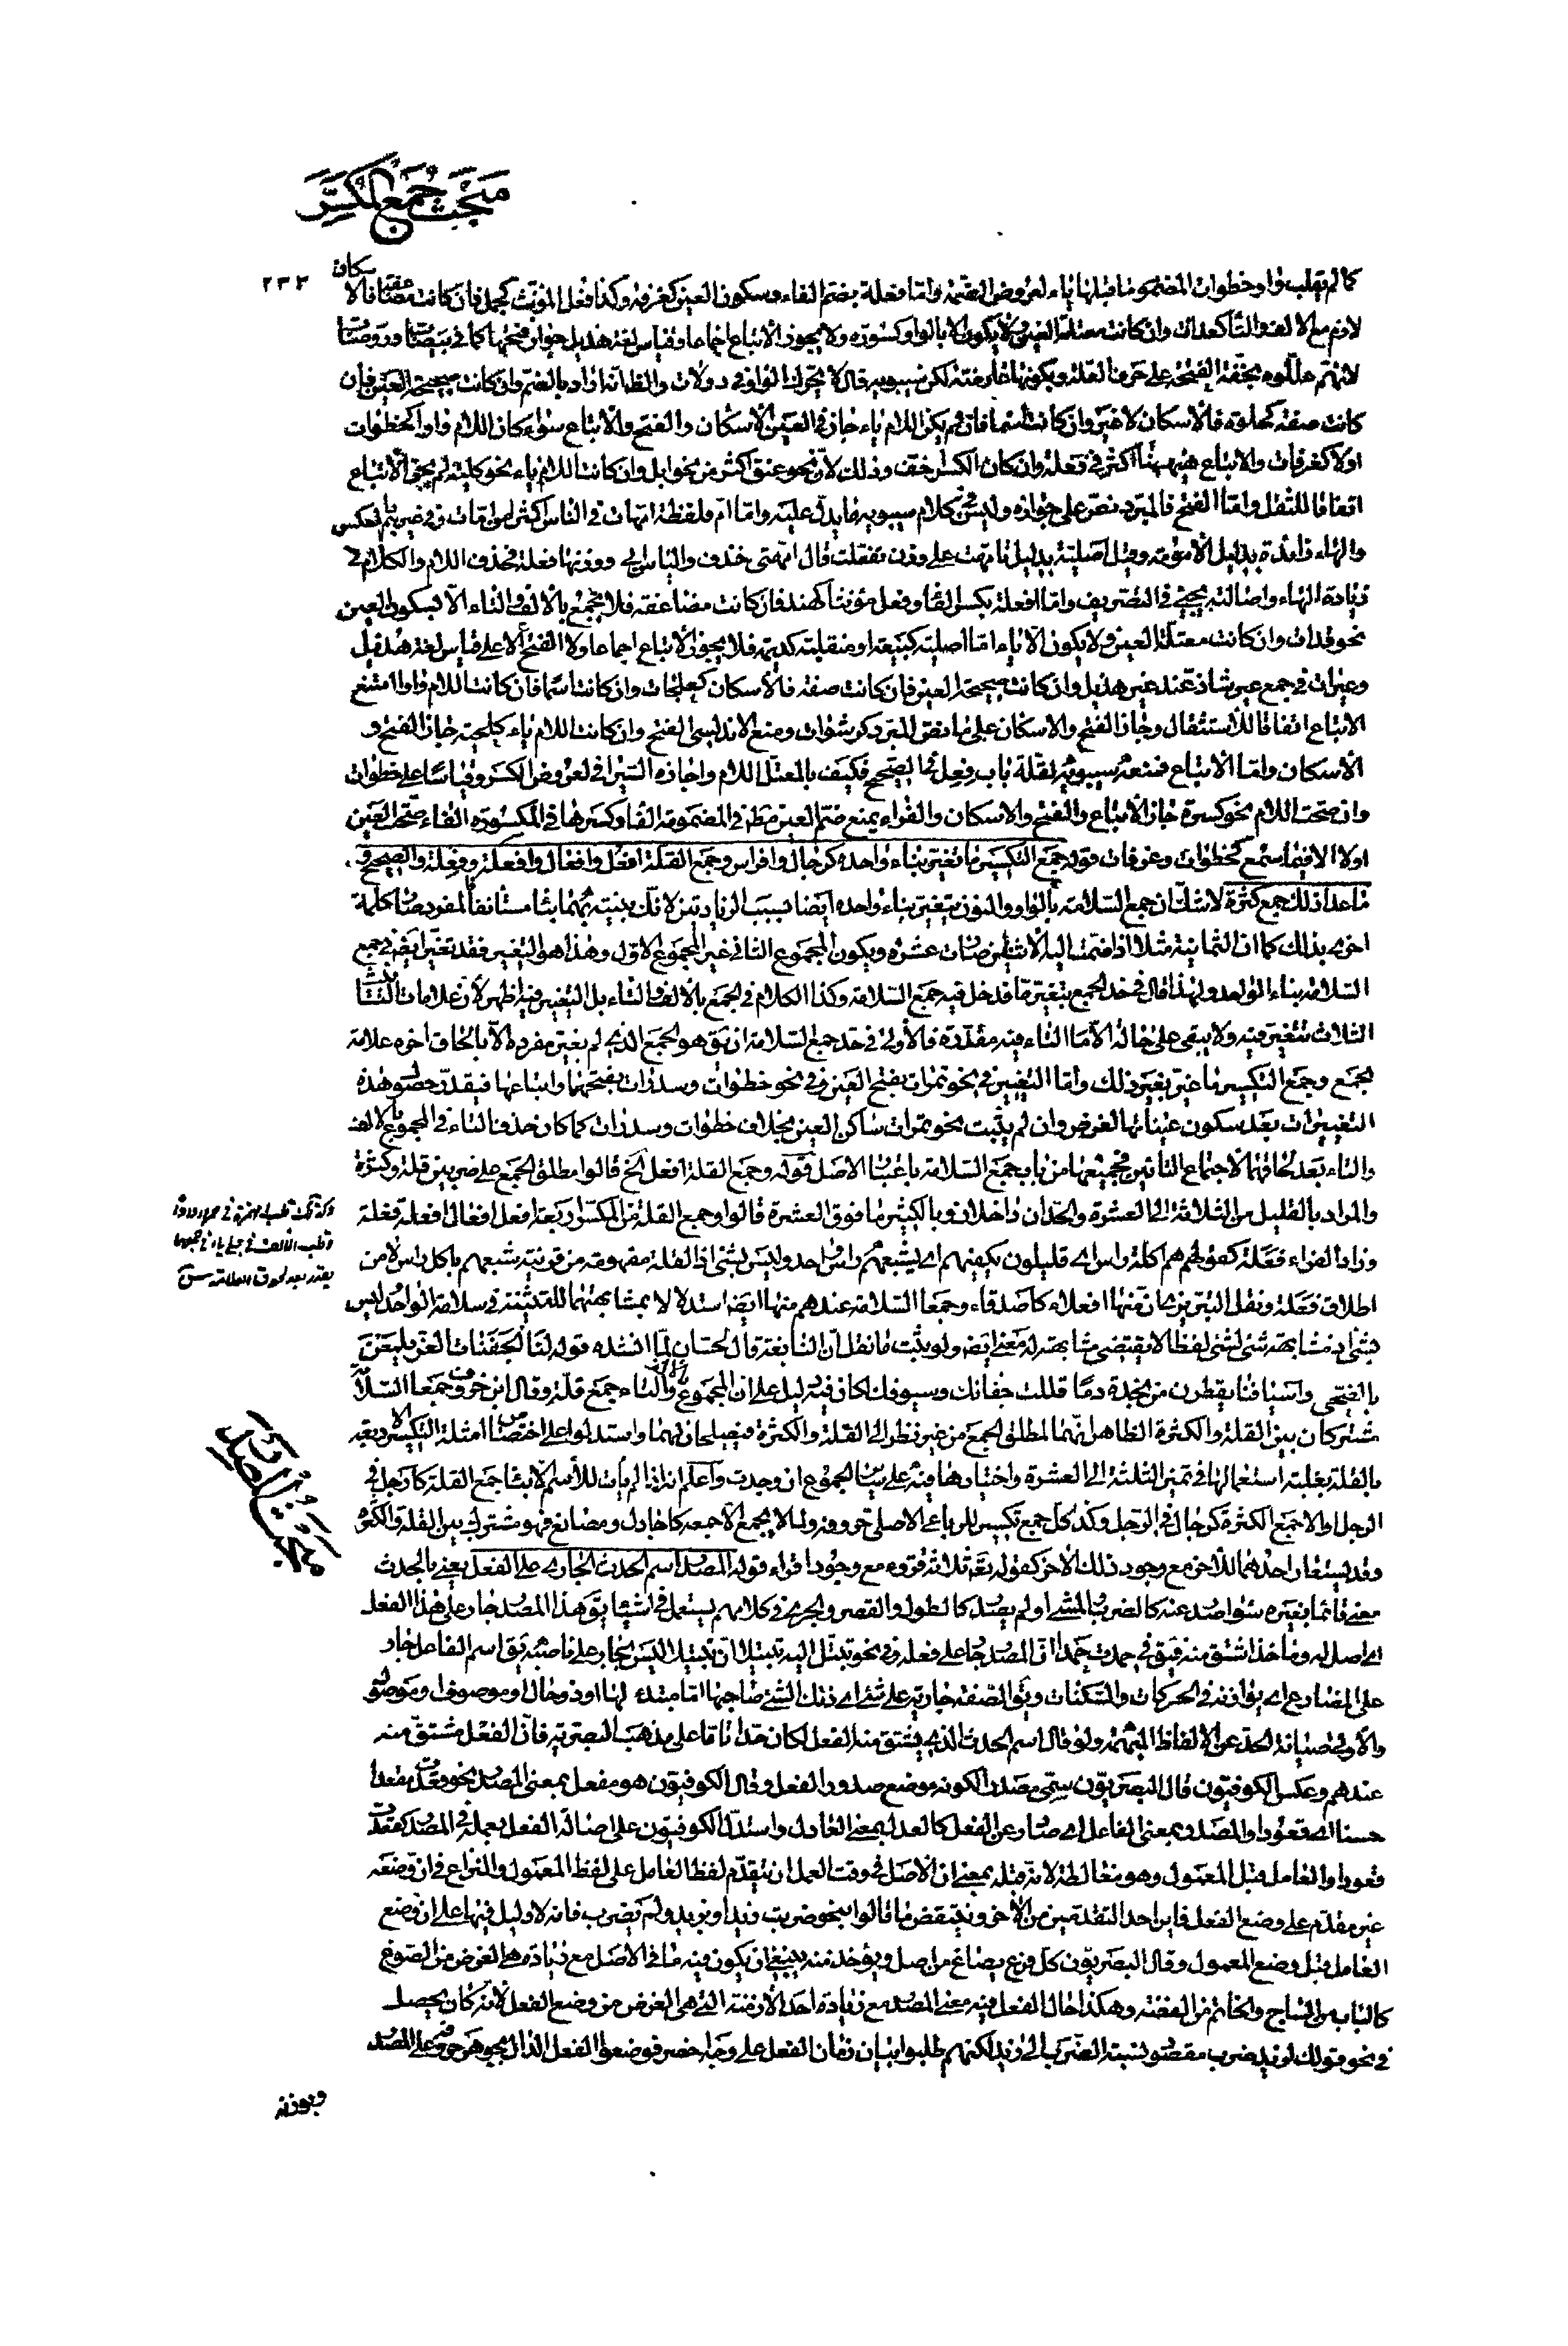 مبحث جمع المكسر
٢٣٣
كما لم تقلب واو خطوات المضموم ما قبلها ياء لعروض الضمة واما فعلة بضم الفاء وسكون العين كغرفة وكذا فعل المؤنث كجمل فان كانت مضاعفة فالاسكان
لازم مع الالف والتاء كعدات وان كانت معتلة العين ولا يكون الا بالواو كسورة ولا يجوز الاتباع اجماعا وقياس لغة هذيل جواز فتحها كما في بيضات وروضات
لانهم عللوه بخفة الفتحة على حرف العلة وبكونها عارضة لكن سيبويه قال لا تحرك الواو في دولات والظاهر انه اراد بالضم وان كانت صحيحة العين فان
كانت صفة كحلوة فالاسكان لا غير وان كانت اسما فان لم يكن اللام ياء جاز في العين الاسكان والفتح والاتباع سواء كان اللام واوا كخطوات
اولا كغرفات والاتباع ههنا اكثر في فعلة وان كان الكسر اخف وذلك لان نحو عنق اكثر من نحو ابل وان كانت اللام ياء نحو كلية لم يجز الاتباع
اتفاقا للثقل واما الفتح فالمبرد نص على جوازه وليس في كلام سيبويه ما يدل عليه واما ام فلفظة امهات في الناس اكثر من امات وفي غيرهم بالعكس
والهاء زائدة بدليل الامومة وقيل اصلية بدليل تامهت على وزن تفعلت قال امهتي خندف والياس ابي ووزنها فعلة فحذف اللام والكلام في
زيادة الهاء واصالته يجيئ في التصريف واما فعلة بكسر الفاء وفعل مؤنثا كهند فان كانت مضاعفة فلا يجمع بالالف والتاء الا بسكون العين
نحو قدات وان كانت معتلة العين ولا يكون الا ياء اما اصلية كبيعة او منقلبة كديمة فلا يجوز الاتباع اجماعا ولا الفتح الا على قياس لغة هذيل
وعيرات في جمع عير شاذ عند غير هذيل وان كانت صحيحة العين فان كانت صفة فالاسكان كعلجات وان كانت اسما فان كانت اللام واوا امتنع
الاتباع اتفاقا للاستثقال وجاز الفتح والاسكان على ما نص المبرد كرشوات ومنع الاندلسي الفتح وان كانت اللام ياء كلحية جاز الفتح و
الاسكان واما الاتباع فمنعه سيبويه لقلة باب فعل في الصحيح فكيف بالمعتل اللام واجازه السيرافي لعروض الكسر وقياسا على خطوات
وان صحت اللام نحو كسرة جاز الاتباع والفتح والاسكان والفراء يمنع ضم العين مطلقا في المضمومة الفاء وكسرها في المكسورة الفاء صحت العين
اولا الا فيما سمع كخطوات وغرفات قوله جمع التكسير ما تغير بناء واحده كرجال وافراس وجمع القلة افعل وافعال وافعلة وفعلة والصحيح و
ما عدا ذلك جمع كثرة لا شك ان جمع السلامة بالواو والنون يتغير بناء واحده ايضا بسبب الزيادتين لانك بنيته بهما بناء مستانفا فالمفرد صار كلمة
اخرى بذلك كما ان الثمانية مثلا اذا ضمت اليه الاثنان صارت عشرة ويكون المجموع الثاني غير المجموع الاول وهذا هو التغيير فقد تغير ايضا في جمع
السلامة بناء الواحد ولهذا قال في حد الجمع بتغير ما فدخل فيه جمع السلامة وكذا الكلام في الجمع بالالف والتاء بل التغيير فيه اظهر لان علامات التانيث
الثلاث تتغير فيه ولا يبقى على حاله الا ما التاء فيه مقدرة فالاولى في حد جمع السلامة ان يق هو الجمع الذي لم يغير مفرده الا بالحاق اخره علامة
الجمع وجمع التكسير ما غير بغير ذلك واما التغيير في نحو تمرات بفتح العين وفي نحو خطوات وسدرات بفتحها واتباعها فيقدر حصول هذه
التغييرات بعد سكون عيناتها لغرض وان لم يثبت نحو تمرات ساكن العين بخلاف خطوات وسدرات كما كان حذف التاء في المجموع بالالف
والتاء بعد لحاقهما لاجتماع التائين فجميعها من باب جمع السلامة باعتبار الاصل قوله وجمع القلة افعل الخ قالوا مطلق الجمع على ضربين قلة وكثرة
والمراد بالقليل من الثلاثة الى العشرة والحدان داخلان وبالكثير ما فوق العشرة قالوا وجمع القلة من المكسر اربعة افعل افعال افعلة فعلة
وزاد الفراء فعلة كقولهم هم اكلة راس اي قليلون يكفيهم اي يشبعهم راس واحد وليس بشئ اذ القلة مفهومة من قرينة شبعهم باكل راس لا من
اطلاق فعلة ونقل التبريزي ان منها افعلاء كاصدقاء وجمعا السلامة عندهم منها ايضا استدلالا بمشابهتهما للتثنية في سلامة الواحد وليس
بشئ اذ مشابهة شئ لشئ لفظا لا يقتضي مشابهته له معنى ايضا ولو يثبت ما نقل ان النابغة قال لحسان لما انشده قوله لنا الجفنات الغر يلمعن
بالضحى واسيافنا يقطرن من نجدة دما قللت جفانك وسيوفك لكان فيه دليل على ان المجموع بالالف والتاء جمع قلة وقال ابن خروف جمعا السلامة
مشتركان بين القلة والكثرة والظاهر انهما لمطلق الجمع من غير نظر الى القلة والكثرة فيصلحان لهما واستدلوا على اختصاص امثلة التكسير الاربعة
بالقلة بغلبة استعمالها في تمييز الثلثة الى العشرة واختيارها فيه على سائر الجموع ان وجدت واعلم انه اذا لم يات للاسم الا بناء جمع القلة كارجل في
الرجل او الا جمع الكثرة كرجال في الرجل وكذا كل جمع تكسير للرباعي الاصلي حروفه وما لا يجمع الا جمعه كاجادل ومصانع فهو مشترك بين القلة والكثرة
وقد يستعار احدهما للاخر مع وجود ذلك الاخر كقوله تعالى ثلاثة قروء مع وجود اقراء قوله المصدر اسم الحدث الجاري على الفعل يعني بالحدث
معنى قائما بغيره سواء صدر عنه كالضرب والمشي او لم يصدر كالطول والقصر والجري في كلامهم يستعمل في اشياء يق هذا المصدر جار على هذا الفعل
اي اصل له وماخذ اشتق منه فيق في حمدت حمدا ان المصدر جار على فعله وفي نحو تبتل اليه تبتيلا ان تبتيلا ليس بجار على ناصبه ويق اسم الفاعل جار
على المضارع اي يوازنه في الحركات والسكنات ويق الصفة جارية على شئ اي ذلك الشئ صاحبها اما مبتدء لها او ذو حال او موصوف او موصول
والاولى صيانة الحد عن الالفاظ المبهمة ولو قال اسم الحدث الذي يشتق منه الفعل لكان حدا تاما على مذهب البصرية فان الفعل مشتق منه
عندهم وعكس الكوفيون قال البصريون سمي مصدرا لكونه موضع صدور الفعل وقال الكوفيون هو مفعل بمعنى المصدر نحو قعدت مقعدا
حسنا اي قعودا والمصدر بمعنى الفاعل اي صادر عن الفعل كالعدل بمعنى العادل واستدل الكوفيون على اصالة الفعل بعمله في المصدر كقعدت
قعودا والعامل قبل المعمول وهو مغالطة لانه قبله بمعنى ان الاصل في وقت العمل ان يتقدم لفظ العامل على لفظ المعمول والنزاع في ان وضعه
غير مقدم على وضع الفعل فاين احد التقدمين من الاخر وينتقض ما قالوا بنحو ضربت زيدا وبزيد ولم يضرب فانه لا دليل فيها على ان وضع
العامل قبل وضع المعمول وقال البصريون كل فرع يصاغ من اصل ويؤخذ منه ينبغي ان يكون فيه ما في الاصل مع زيادة هي الغرض من الصوغ
كالباب من الساج والخاتم من الفضة وهكذا حال الفعل فيه معنى المصدر مع زيادة احد الازمنة التي هي الغرض من وضع الفعل لانه كان يحصل
في نحو قولك لزيد ضرب مقصود نسبة الضرب الى زيد لكنهم طلبوا بيان زمان الفعل على وجه اخصر فوضعوا الفعل الدال بجوهر حروفه على المصدر
وبوزنه
مبحث المصدر